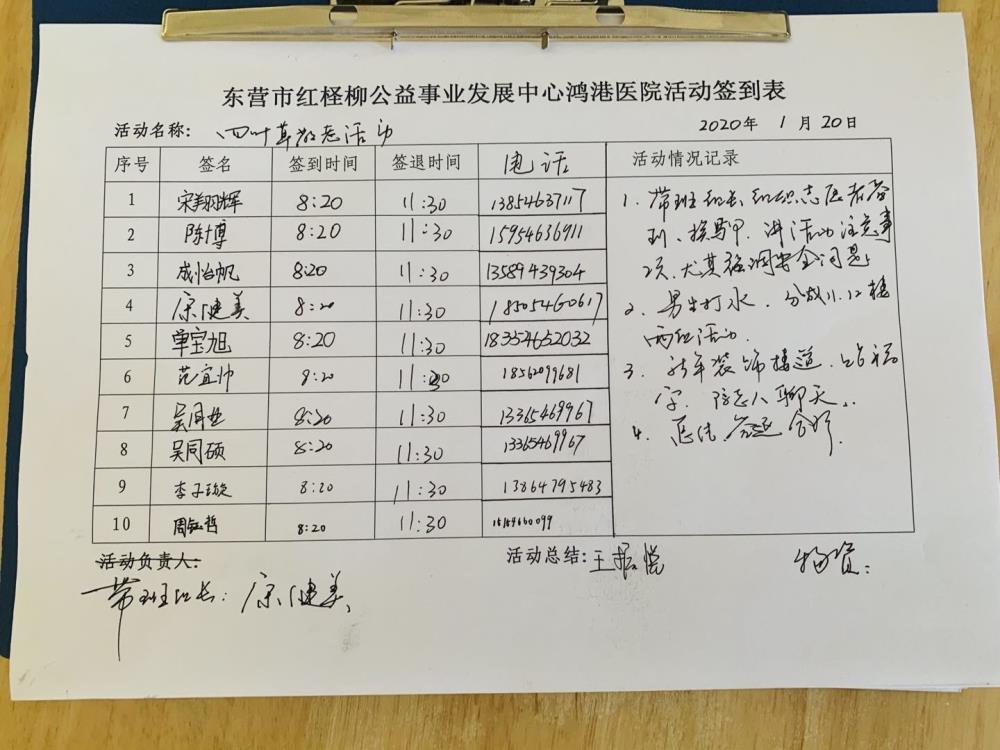 东营市红柽柳公益事业发展中心鸿港医院活动签到表
活动名称: 四叶草敬老活动
2020年 1月20日
序号 签名 签到时间 签退时间 电话 活动情况记录
1 宋翔辉 8:20 11:30 13854637117
2 陈博 8:20 11:30 15954636911
3 成怡帆 8:20 11:30 13589439304
4 康健美 8:20 11:30 18505460617
5 单宝旭 8:20 11:30 18354652032
6 范宜帅 8:20 11:30 18562099681
7 吴同业 8:20 11:30 13365469967
8 吴同硕 8:20 11:30 13365469967
9 李子璇 8:20 11:30 13864795483
10 周钰哲 8:20 11:30
1. 带班组长组织志愿者签
到、换马甲. 讲活动注意事
项. 尤其强调安全问题
2. 男生打水. 分成11.12楼
两组活动.
3. 新年装饰楼道. 贴福
字. 陪老人聊天..
4. 总结. 签退 合影.
活动负责人:
活动总结: 王振悦
物资:
带班组长: 康健美